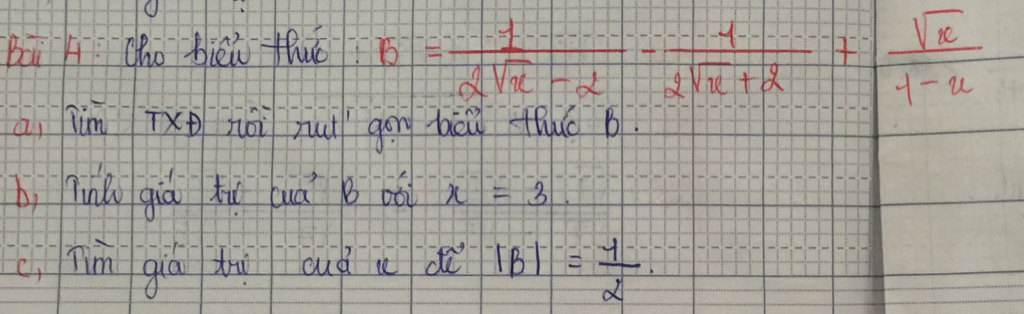 Bài 4: Cho biểu thức: B = \frac{1}{2\sqrt{x} - 2} - \frac{1}{2\sqrt{x} + 2} + \frac{\sqrt{x}}{1 - x}
a, Tìm TXĐ rồi rút gọn biểu thức B.
b, Tính giá trị của B với x = 3.
c, Tìm giá trị của x để |B| = \frac{1}{2}.